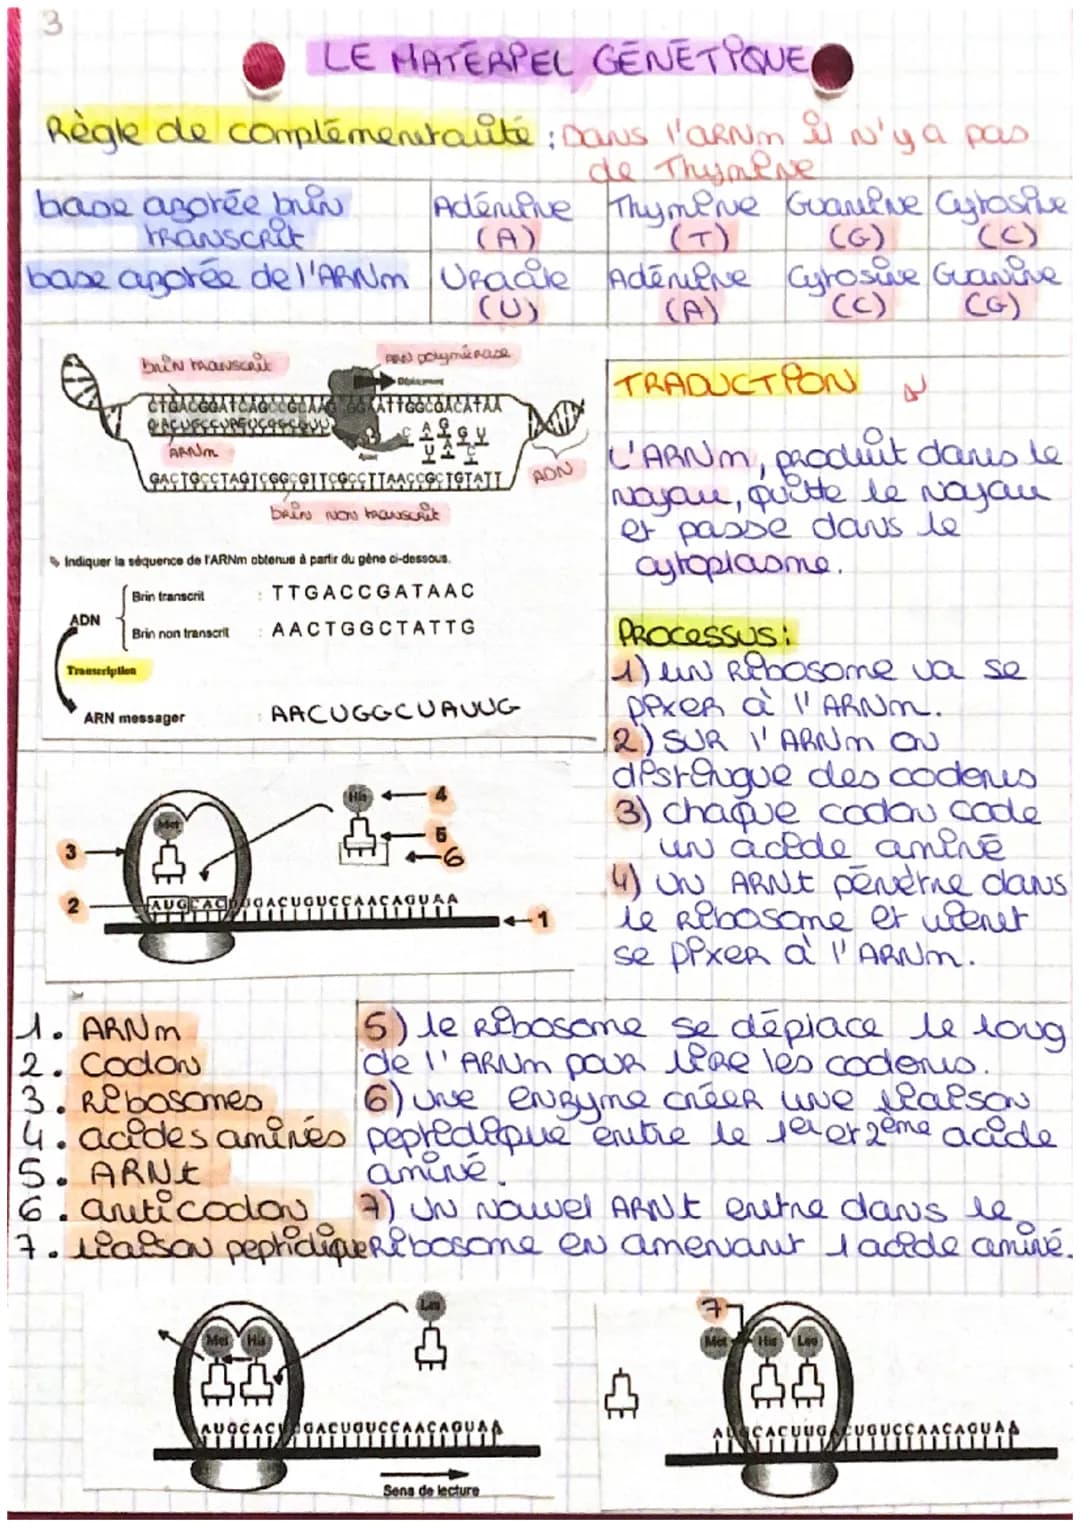 3
LE MATERIEL GÉNÉTIQUE
Règle de complémentarité : Dans l'ARNm il n'y a pas
de Thymine
base azotée brin transcrit | Adénine (A) | Thymine (T) | Guanine (G) | Cytosine (C)
base azotée de l'ARNm | Uracile (U) | Adénine (A) | Cytosine (C) | Guanine (G)
brin transcrit
ARN polymérase
Déplacement
CTGACGGATCAGCCGCAAG GGAATTGGCGACATAA
ARNm
Ajout
GACTGCCTAGTCGGCGTTCGCCTTAACCGCTGTATT
ADN
brin non transcrit
Indiquer la séquence de l'ARNm obtenue à partir du gène ci-dessous.
ADN
Brin transcrit : TTGACCGATAAC
Brin non transcrit : AACTGGCTATTG
Transcription
ARN messager : AACUGGCUAUUG
TRADUCTION
L'ARNm, produit dans le
noyau, quitte le noyau
et passe dans le
cytoplasme.
PROCESSUS :
1) un Ribosome va se
fixer à l'ARNm.
2) SUR l'ARNm on
distingue des codons
3) chaque codon code
un acide aminé
4) UN ARNt pénètre dans
le Ribosome et vient
se fixer à l'ARNm.
Met
His
4
5
6
3
2
AUGCACUUGACUGUCCAACAGUAA
1
1. ARNm
2. Codon
3. Ribosomes
4. acides aminés
5. ARNt
6. anticodon
7. liaison peptidique
5) le Ribosome se déplace le long
de l'ARNm pour lire les codons.
6) une enzyme créer une liaison
peptidique entre le 1er et 2ème acide
aminé.
7) UN nouvel ARNt entre dans le
Ribosome en amenant l'acide aminé.
Leu
Met His
AUGCACUUGACUGUCCAACAGUAA
Sens de lecture
7
Met His Leu
AUGCACUUGACUGUCCAACAGUAA